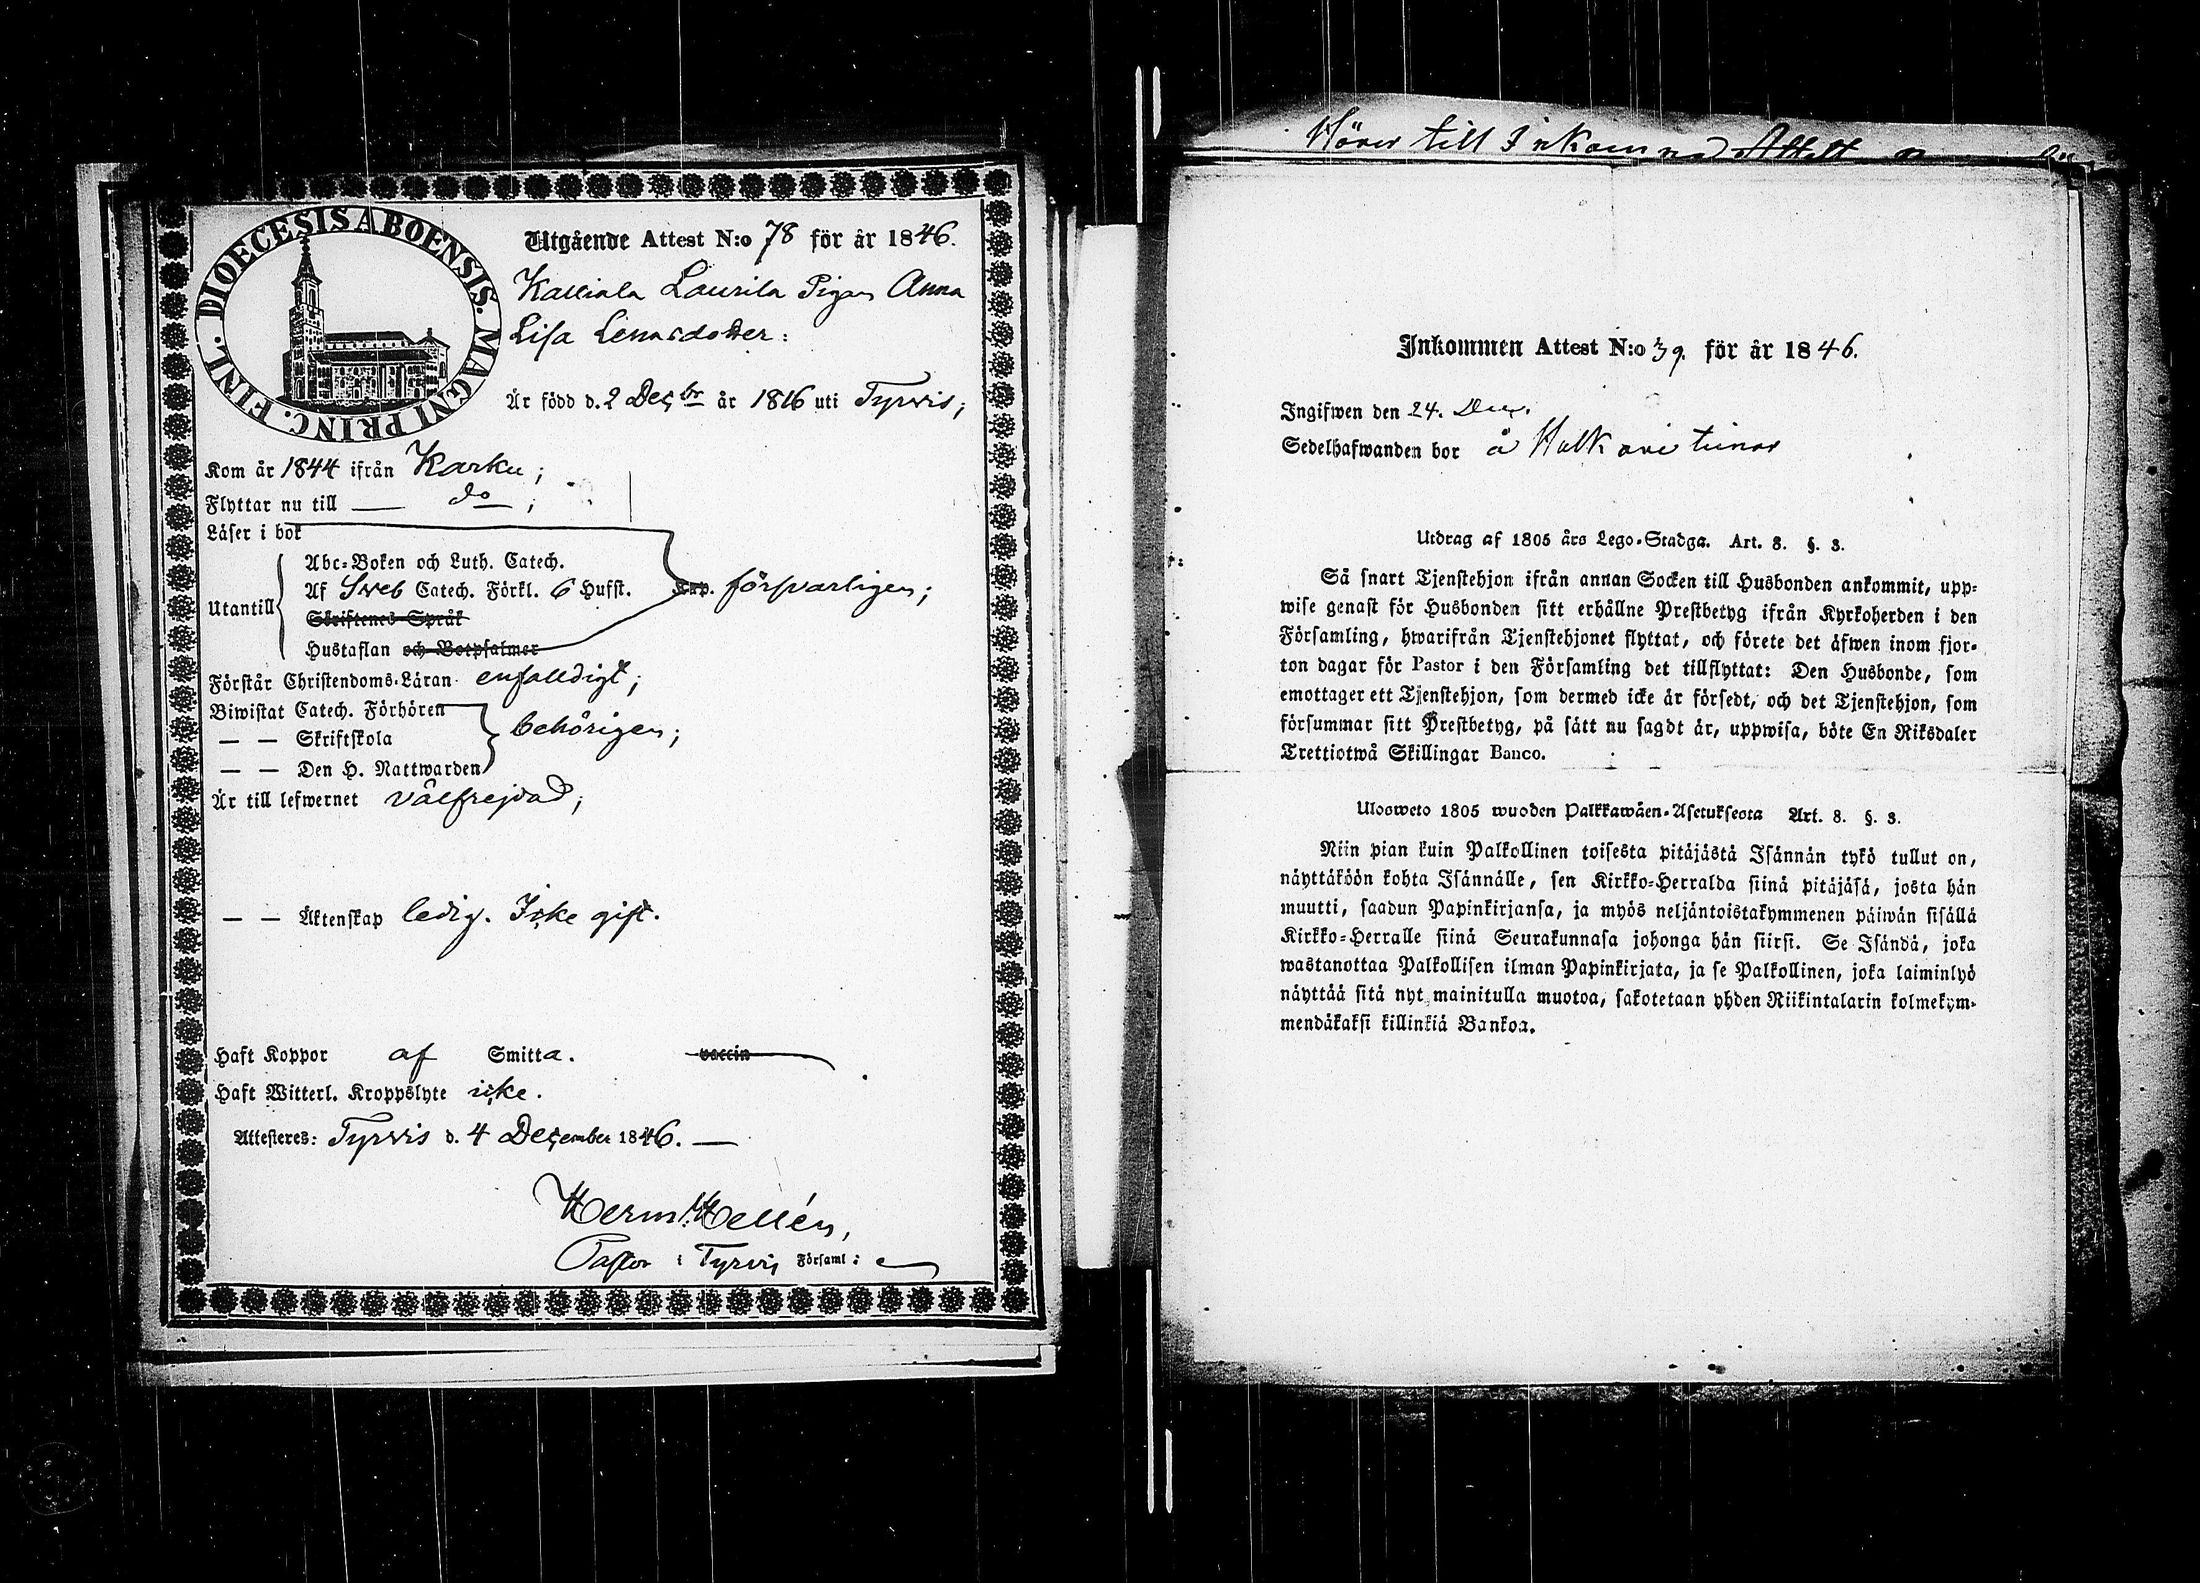 DIOECESIS ABOENSIS. MAGNI PRINC. FINL.
Utgående Attest N:o 78 för år 1846.
Kalliala Laurila Pigan Anna
Lisa Lenasdotter:
Är född d. 2 Decbr år 1816 uti Tyrvis;
Kom år 1844 ifrån Karku;
Flyttar nu till — do — ;
Läser i bok
Abc-Boken och Luth. Catech.
Utantill Af Sveb Catech. Förkl. 6 Hufst. försvarligen;
Skriftenes Språk
Hustaflan och Botpsalmer
Förstår Christendoms-Läran enfalldigt;
Biwistat Catech. Förhören
— — Skriftskola behörigen;
— — Den H. Nattwarden
Är till lefwernet välfrejdad;
— — Äktenskap ledig. Icke gift.
Haft Koppor af Smitta. vaccin
Haft Witterl. Kroppslyte icke.
Attesteres: Tyrvis d. 4 December 1846. —
Herm. Hellén,
Pastor i Tyrvis Församl:
Hörer till Inkommen Attest
Inkommen Attest N:o 39. för år 1846.
Ingifwen den 24. Dec.
Sedelhafwanden bor å
Utdrag af 1805 års Lego-Stadga. Art. 8. §. 3.
Så snart Tjenstehjon ifrån annan Socken till Husbonden ankommit, upp-
wise genast för Husbonden sitt erhållne Prestbetyg ifrån Kyrkoherden i den
Församling, hwarifrån Tjenstehjonet flyttat, och förete det äfwen inom fjor-
ton dagar för Pastor i den Församling det tillflyttat: Den Husbonde, som
emottager ett Tjenstehjon, som dermed icke är försedt, och det Tjenstehjon, som
försummar sitt Prestbetyg, på sätt nu sagdt är, uppwisa, böte En Riksdaler
Trettiotwå Skillingar Banco.
Ulosweto 1805 wuoden Palkkawäen-Asetuksesta Art. 8. §. 3.
Niin pian kuin Palkollinen toisesta pitäjästä Isännän tykö tullut on,
näyttäköön kohta Isännälle, sen Kirkko-Herralda siinä pitäjäsä, josta hän
muutti, saadun Papinkirjansa, ja myös neljäntoistakymmenen päiwän sisällä
Kirkko-Herralle siinä Seurakunnasa johonga hän siirsi. Se Isändä, joka
wastanottaa Palkollisen ilman Papinkirjata, ja se Palkollinen, joka laiminlyö
näyttää sitä nyt mainitulla muotoa, sakotetaan yhden Riikintalarin kolmekym-
mendäkaksi killinkiä Bankoa.